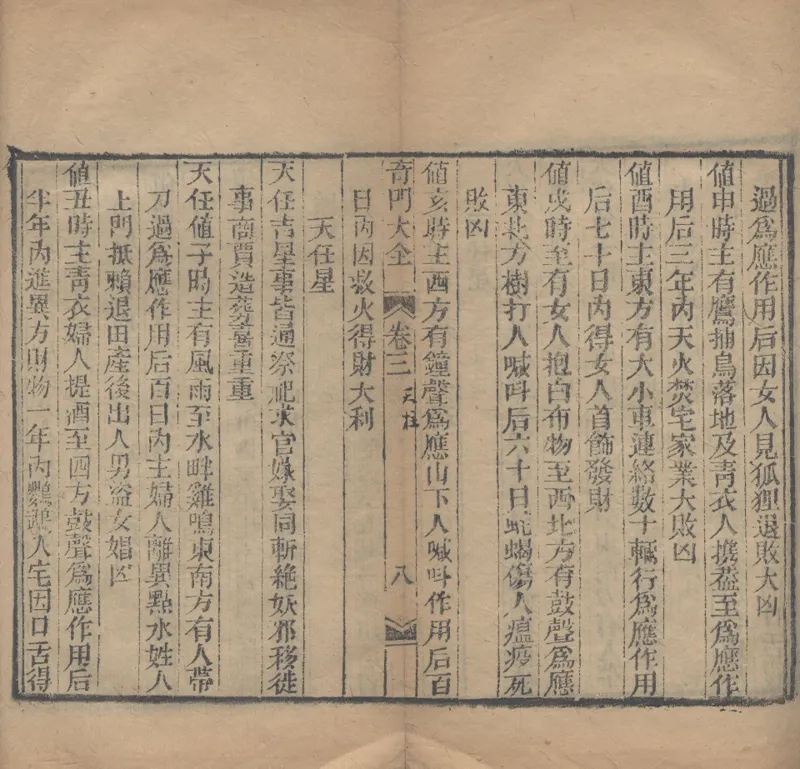 過爲應作用后因女人見狐狸退敗大凶
値申時主有鷹抽鳥落地及靑衣人携葢至爲應作
用后三年內天火焚宅家業大敗凶
値酉時主東方有大小車連絡數十輛行爲應作用
后七十日內得女人首飾發財
値戌時至有女人抱白布物至西北方有鼓聲爲應
東北方樹打人喊呌后六十日蛇蝎傷人瘟疫死
敗凶
値亥時主西方有鐘聲爲應山下人喊呌作用后百
奇門大全 卷三 天柱 八
日內因救火得財大利
天任星
天任吉星事皆通祭祀求官嫁娶同斬絶妖邪移徙
事商賈造葬喜重重
天任値子時主有風雨至水畔雞鳴東南方有人帶
刀過爲應作用后百日內主婦人離異點水姓人
上門抵賴退田產後出人男盜女娼凶
値丑時主靑衣婦人提酒至西方鼓聲爲應作用后
半年內進異方財物一年內鸚鵡入宅因口舌得